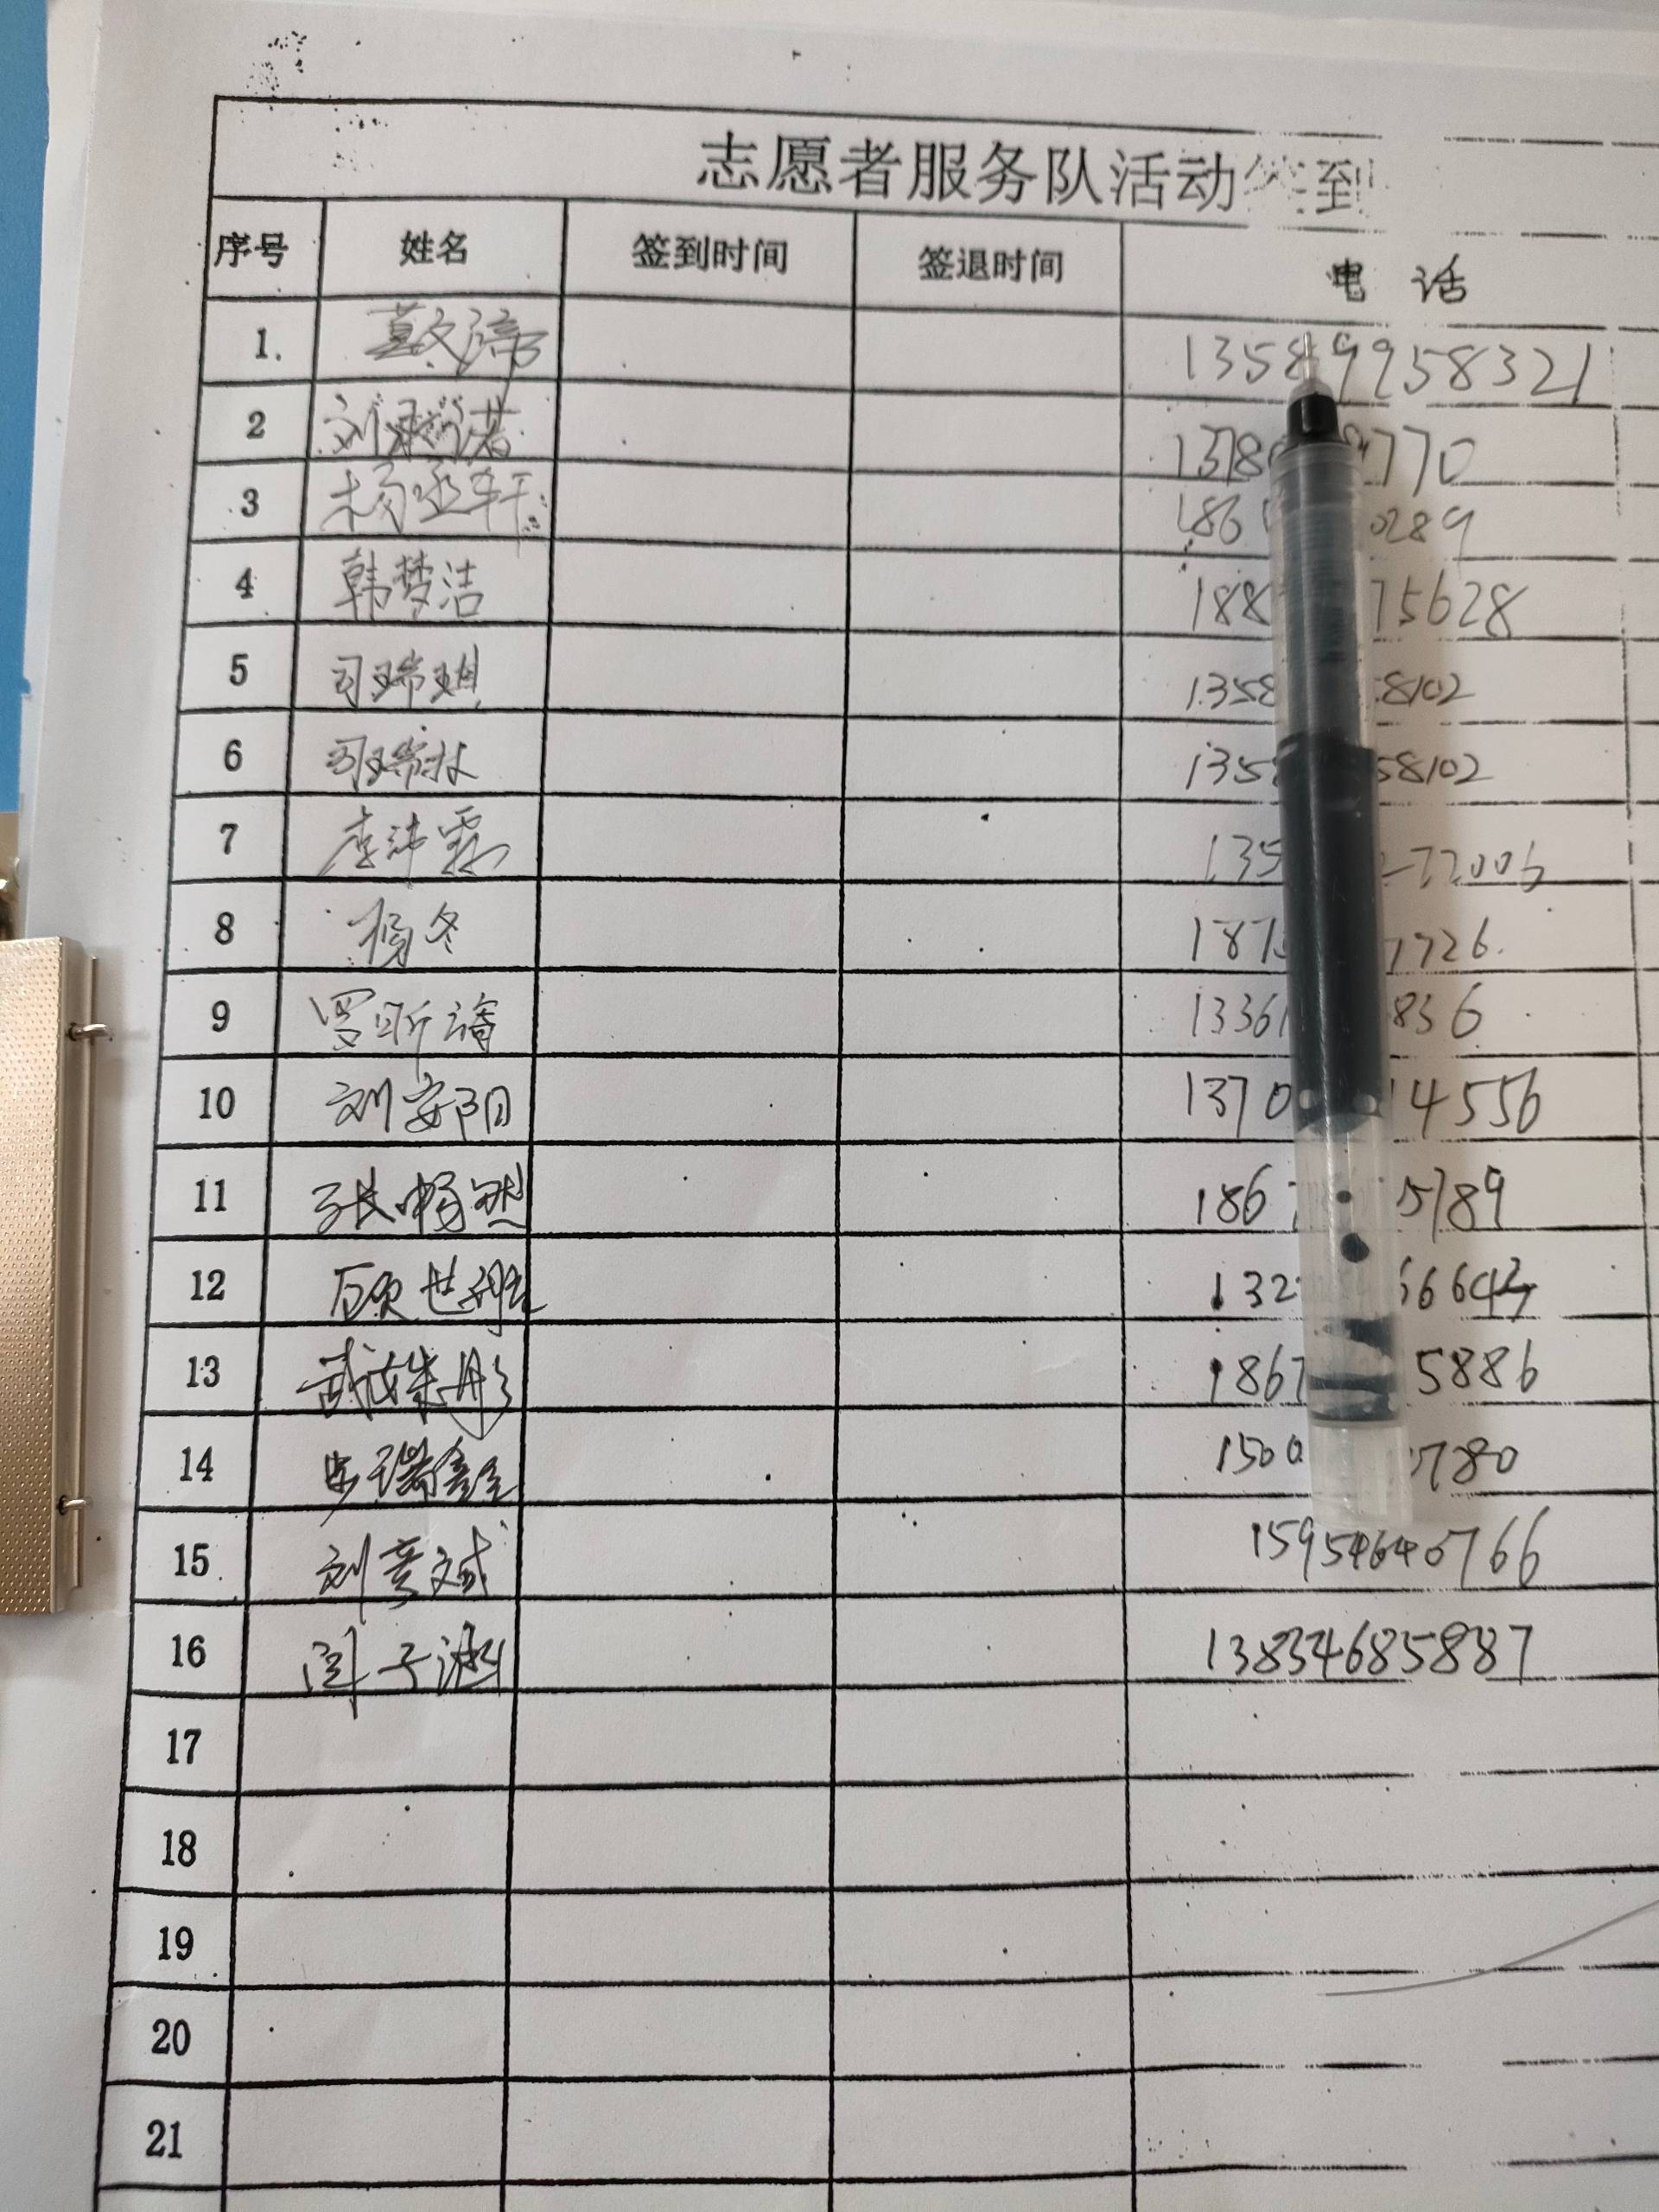 志愿者服务队活动签到
序号 姓名 签到时间 签退时间 电 话
1. 13589958321
2 1378 770
3 杨丞轩 186 0289
4 韩梦洁 188 75628
5 司瑞琪 1358 8102
6 司瑞林 135 58102
7 李沛霖 135 77006
8 杨冬 187 1726
9 罗昕 13361 836
10 刘安阳 1370 14556
11 张畅然 186 5789
12 顾世 132 6664
13 武姝彤 1867 5886
14 史瑞鑫 1500 0780
15 刘彦斌 15954640766
16 闫子涵 13834685887
17
18
19
20
21